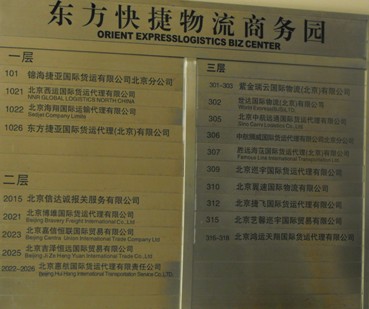 东方快捷物流商务园
ORIENT EXPRESSLOGISTICS BIZ CENTER
一层
101 锦海捷亚国际货运有限公司北京分公司
1021 北京西运国际货运代理有限公司
GLOBAL LOGISTICS NORTH CHINA
1022 北京海翔国际运输代理有限公司
Company Limited
1026 东方捷亚国际货运代理(北京)有限公司
二层
2015 北京信达诚报关服务有限公司
2021 北京博雄国际货运代理有限公司
Beijing Bravery Freight International Co., Ltd
2023 北京嘉信恒联国际贸易有限公司
Beijing Centre Union International Trade Company Ltd
2025 北京吉泽恒远国际贸易有限公司
Beijing Ji Ze Hang Yuan International Trade Co.,Ltd
2022-2026 北京惠航国际货运代理有限责任公司
Beijing Hui Hang International Transportation Service Co., LTD.
三层
301-303 紫金瑞云国际物流(北京)有限公司
302 世达国际物流(北京)有限公司
305 北京中航运通国际货运代理有限公司
306 国际货运代理有限公司北京分公司
307 国际货运代理(北京)有限公司
Famous Line International Transportation
309 北京志宇国际货运代理有限公司
310 北京翼速国际物流有限公司
312 北京捷飞国际货运代理有限公司
315 北京艺馨志宇国际贸易有限公司
316-318 北京鸿运天翔国际货运代理有限公司